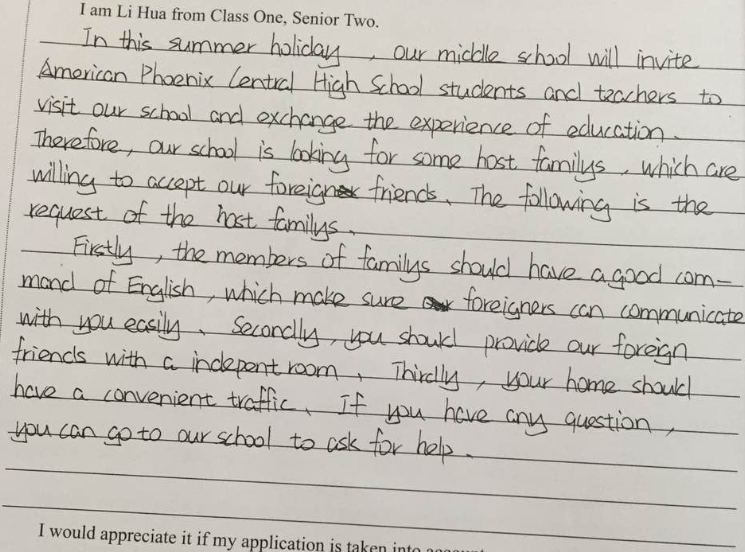 I am Li Hua from Class One, Senior Two.
In this summer holiday, our middle school will invite
American Phoenix Central High School students and teachers to
visit our school and exchange the experience of education.
Therefore, our school is looking for some host familys, which are
willing to accept our foreign friends. The following is the
request of the host familys.
Firstly, the members of familys should have a good com-
mand of English, which make sure foreigners can communicate
with you easily. Secondly, you should provide our foreign
friends with a indepent room. Thirdly, your home should
have a convenient traffic. If you have any question,
you can go to our school to ask for help.
I would appreciate it if my application is taken into